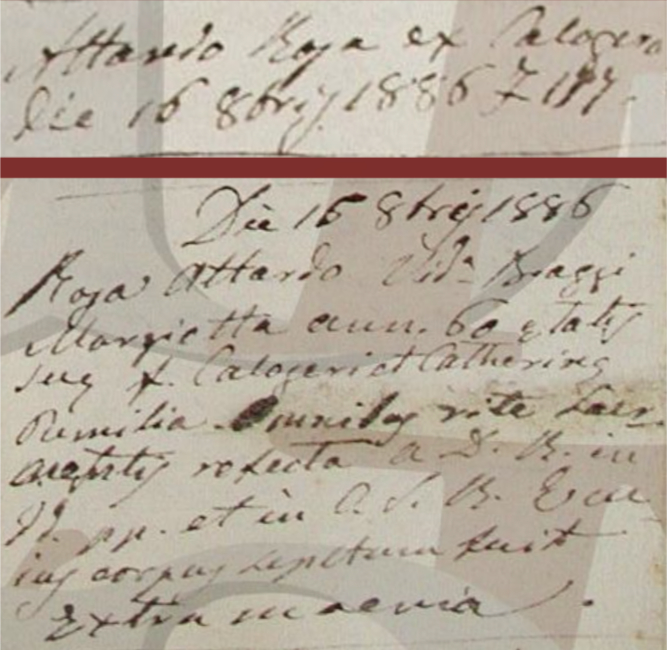 Attardo Rosa ex Calogero
Die 16 8bris 1886 F 117.
Die 16 8bris 1886
Rosa Attardo Vid.a Biaggi
Margiotta ann. 60 etatis
sue f. Calogeri et Catherine
Rumilia Omnibus rite Sacr
amentis refecta a D. B. in
pp. et in a S. B. E cu
ius corpus sepultum fuit
extra maenia.